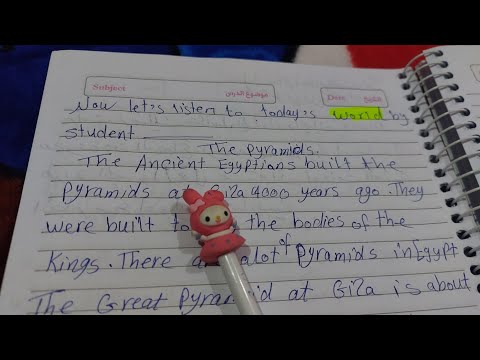 Subject
Date
Now let's listen to today's world by
student
The Pyramids.
The Ancient Egyptions built the
Pyramids at Giza 4000 years ago. They
were built to the bodies of the
Kings. There a alot of Pyramids in Egypt
The Great Pyramid at Giza is about